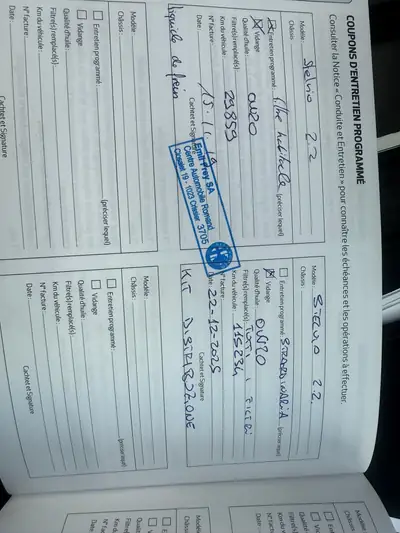 COUPONS D'ENTRETIEN PROGRAMMÉ
Consulter la Notice « Conduite et Entretien » pour connaître les échéances et les opérations à effectuer.
Modèle : Stelvio 2.2
Châssis :
Entretien programmé : (préciser lequel)
Vidange
Qualité d'huile : 0W20
Filtre(s) remplacé(s)
Km du véhicule : 29859
N° facture :
Date : 15.11.19
Cachet et Signature
Emil Frey SA
Centre Automobile Romand
Crissier 19 - 1023 Crissier 3705
liquide de frein
Modèle : STELVIO 2.2.
Châssis :
Entretien programmé : STRAORDINARIA (préciser lequel)
Vidange
Qualité d'huile : 0W20
Filtre(s) remplacé(s) : TUTTI I FILTRI
Km du véhicule : 115234
N° facture :
Date : 20-12-2025
Cachet et Signature
KIT DISTRIBUZIONE
Modèle :
Châssis :
Entretien programmé : (préciser lequel)
Vidange
Qualité d'huile :
Filtre(s) remplacé(s) :
Km du véhicule :
N° facture :
Date :
Cachet et Signature
Modèle :
Châssis :
Entretien programmé : (préciser lequel)
Vidange
Qualité d'huile :
Filtre(s) remplacé(s) :
Km du véhicule :
N° facture :
Date :
Cachet et Signature